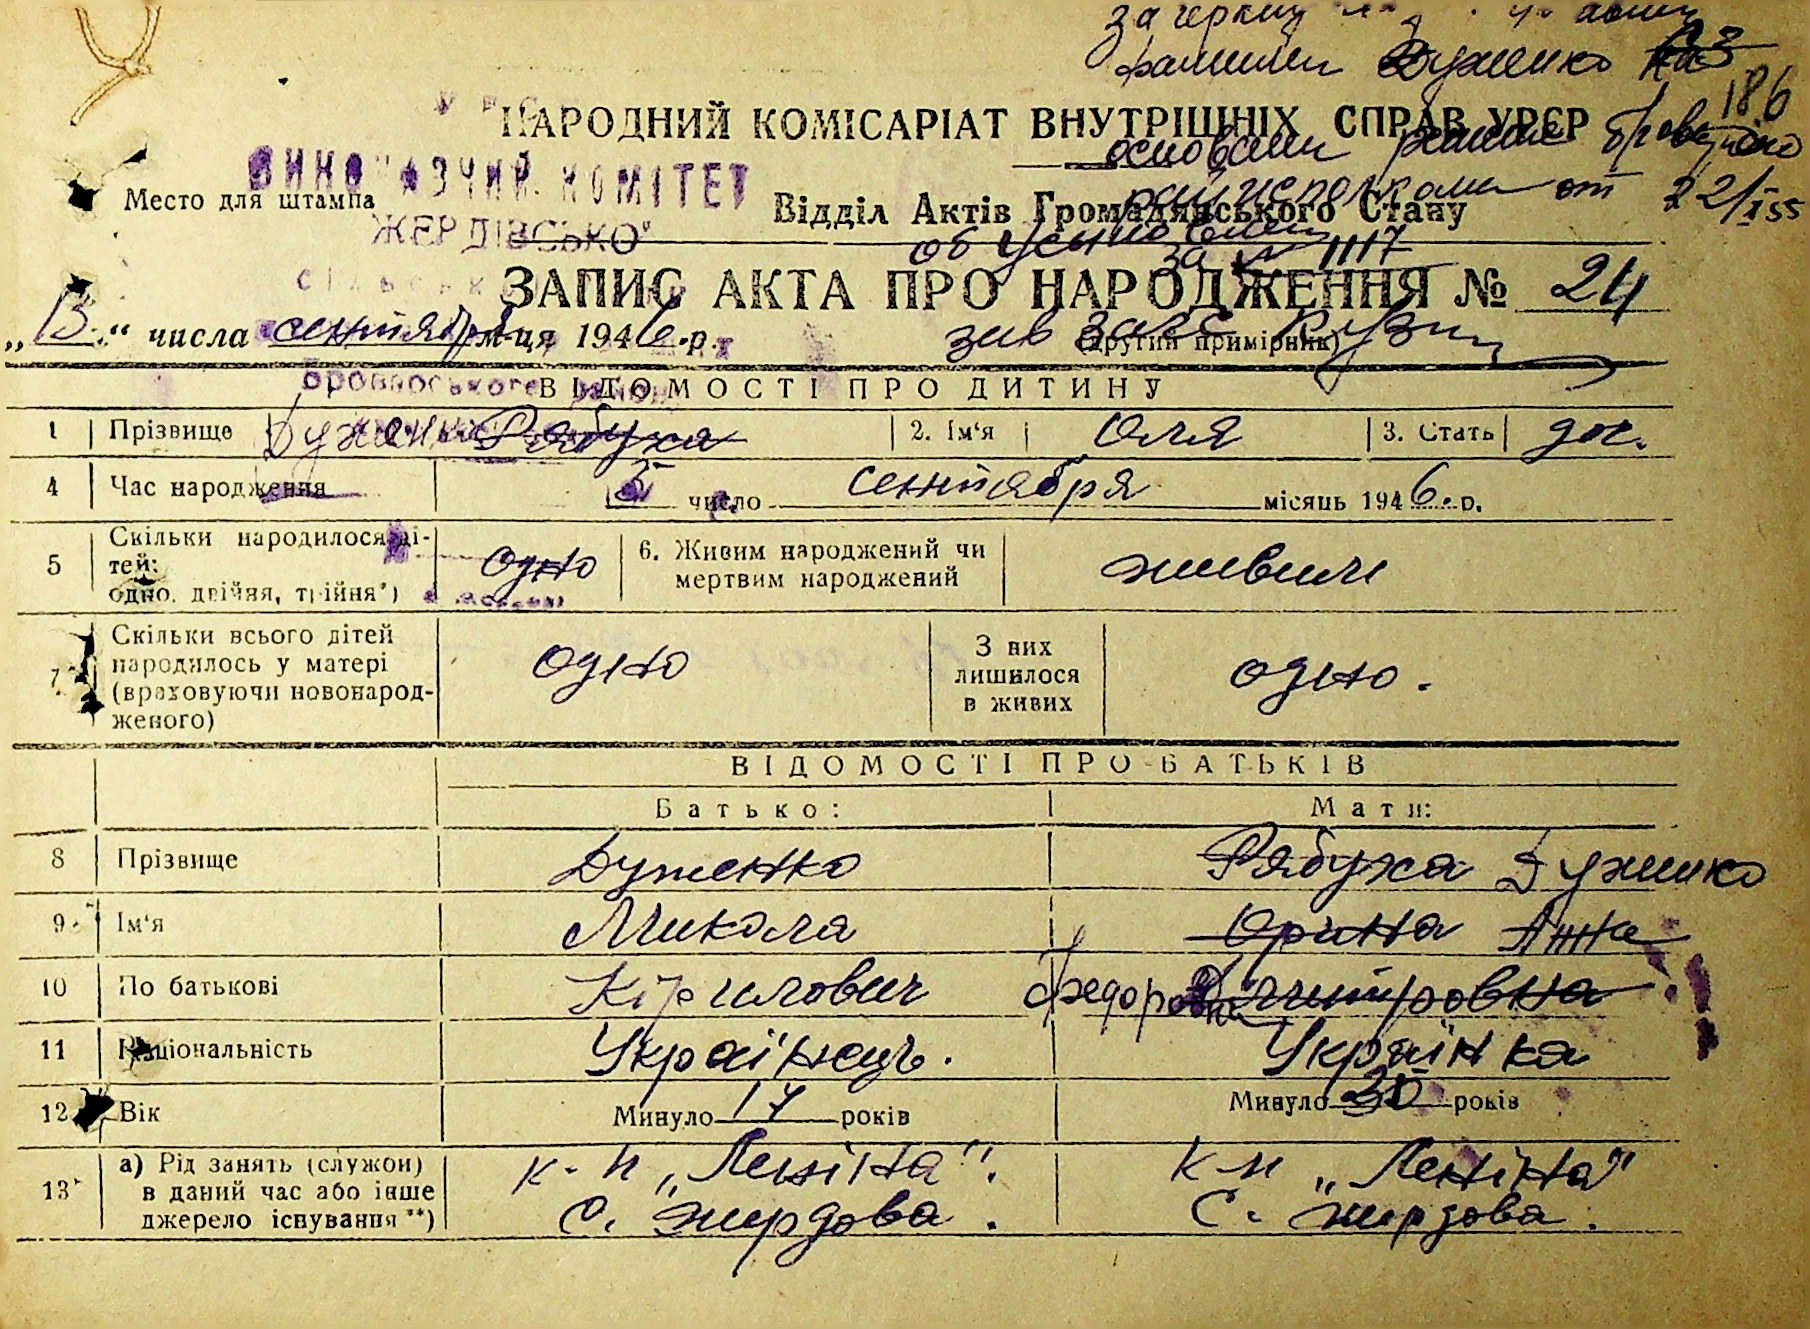 фамилии Дуженко на
186
НАРОДНИЙ КОМІСАРІАТ ВНУТРІШНІХ СПРАВ УРСР
основании решение
ВИКОНАВЧИЙ КОМІТЕТ
Место для штампа
райисполкома от 22/I 55
Відділ Актів Громадянського Стану
ЖЕРДІВСЬКО
об усыновлении
за № 1117
ЗАПИС АКТА ПРО НАРОДЖЕННЯ № 24
„13“ числа сентября м-ця 1946 р.
зав Загс
(другий примірник)
Броварського району
ВІДОМОСТІ ПРО ДИТИНУ
1 Прізвище Дуженко Рябуха 2. Ім'я Оля 3. Стать жос.
4 Час народження 5 число сентября місяць 1946 р.
5 Скільки народилося дітей: одно, двійня, трійня*) одно 6. Живим народжений чи мертвим народжений живим
7 Скільки всього дітей народилось у матері (враховуючи новонародженого) одно З них лишилося в живих одно.
ВІДОМОСТІ ПРО БАТЬКІВ
Батько: Мати:
8 Прізвище Дуженко Рябуха Дуженко
9 Ім'я Микола Орина Анна
10 По батькові Кірилович Федоровна Дмитровна
11 Національність Українець. Українка
12 Вік Минуло 17 років Минуло 35 років
13 а) Рід занять (служби) в даний час або інше джерело існування **) к-п „Леніна“. к-п „Леніна“
с. Жирдова. с. Жирдова.